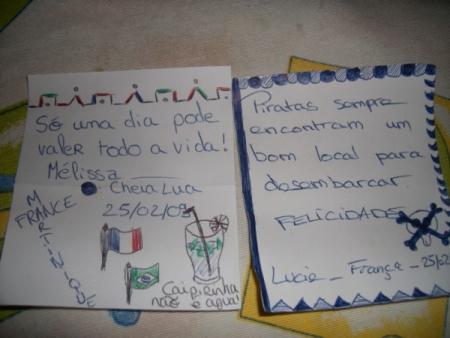 Só una dia pode
valer todo a vida!
Mélissa
Cheia Lua
25/02/09
FRANCE
MARTINIQUE
Caipirinha
não e agua!
Piratas sempre
encontram um
bom local para
desembarcar.
FELICIDADE
Lucie _ France _ 25/02